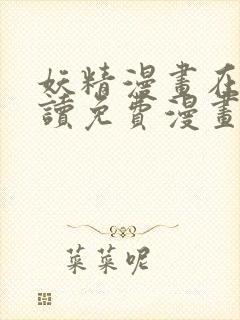 妖精漫畫在
讀免費漫畫
菜菜呢